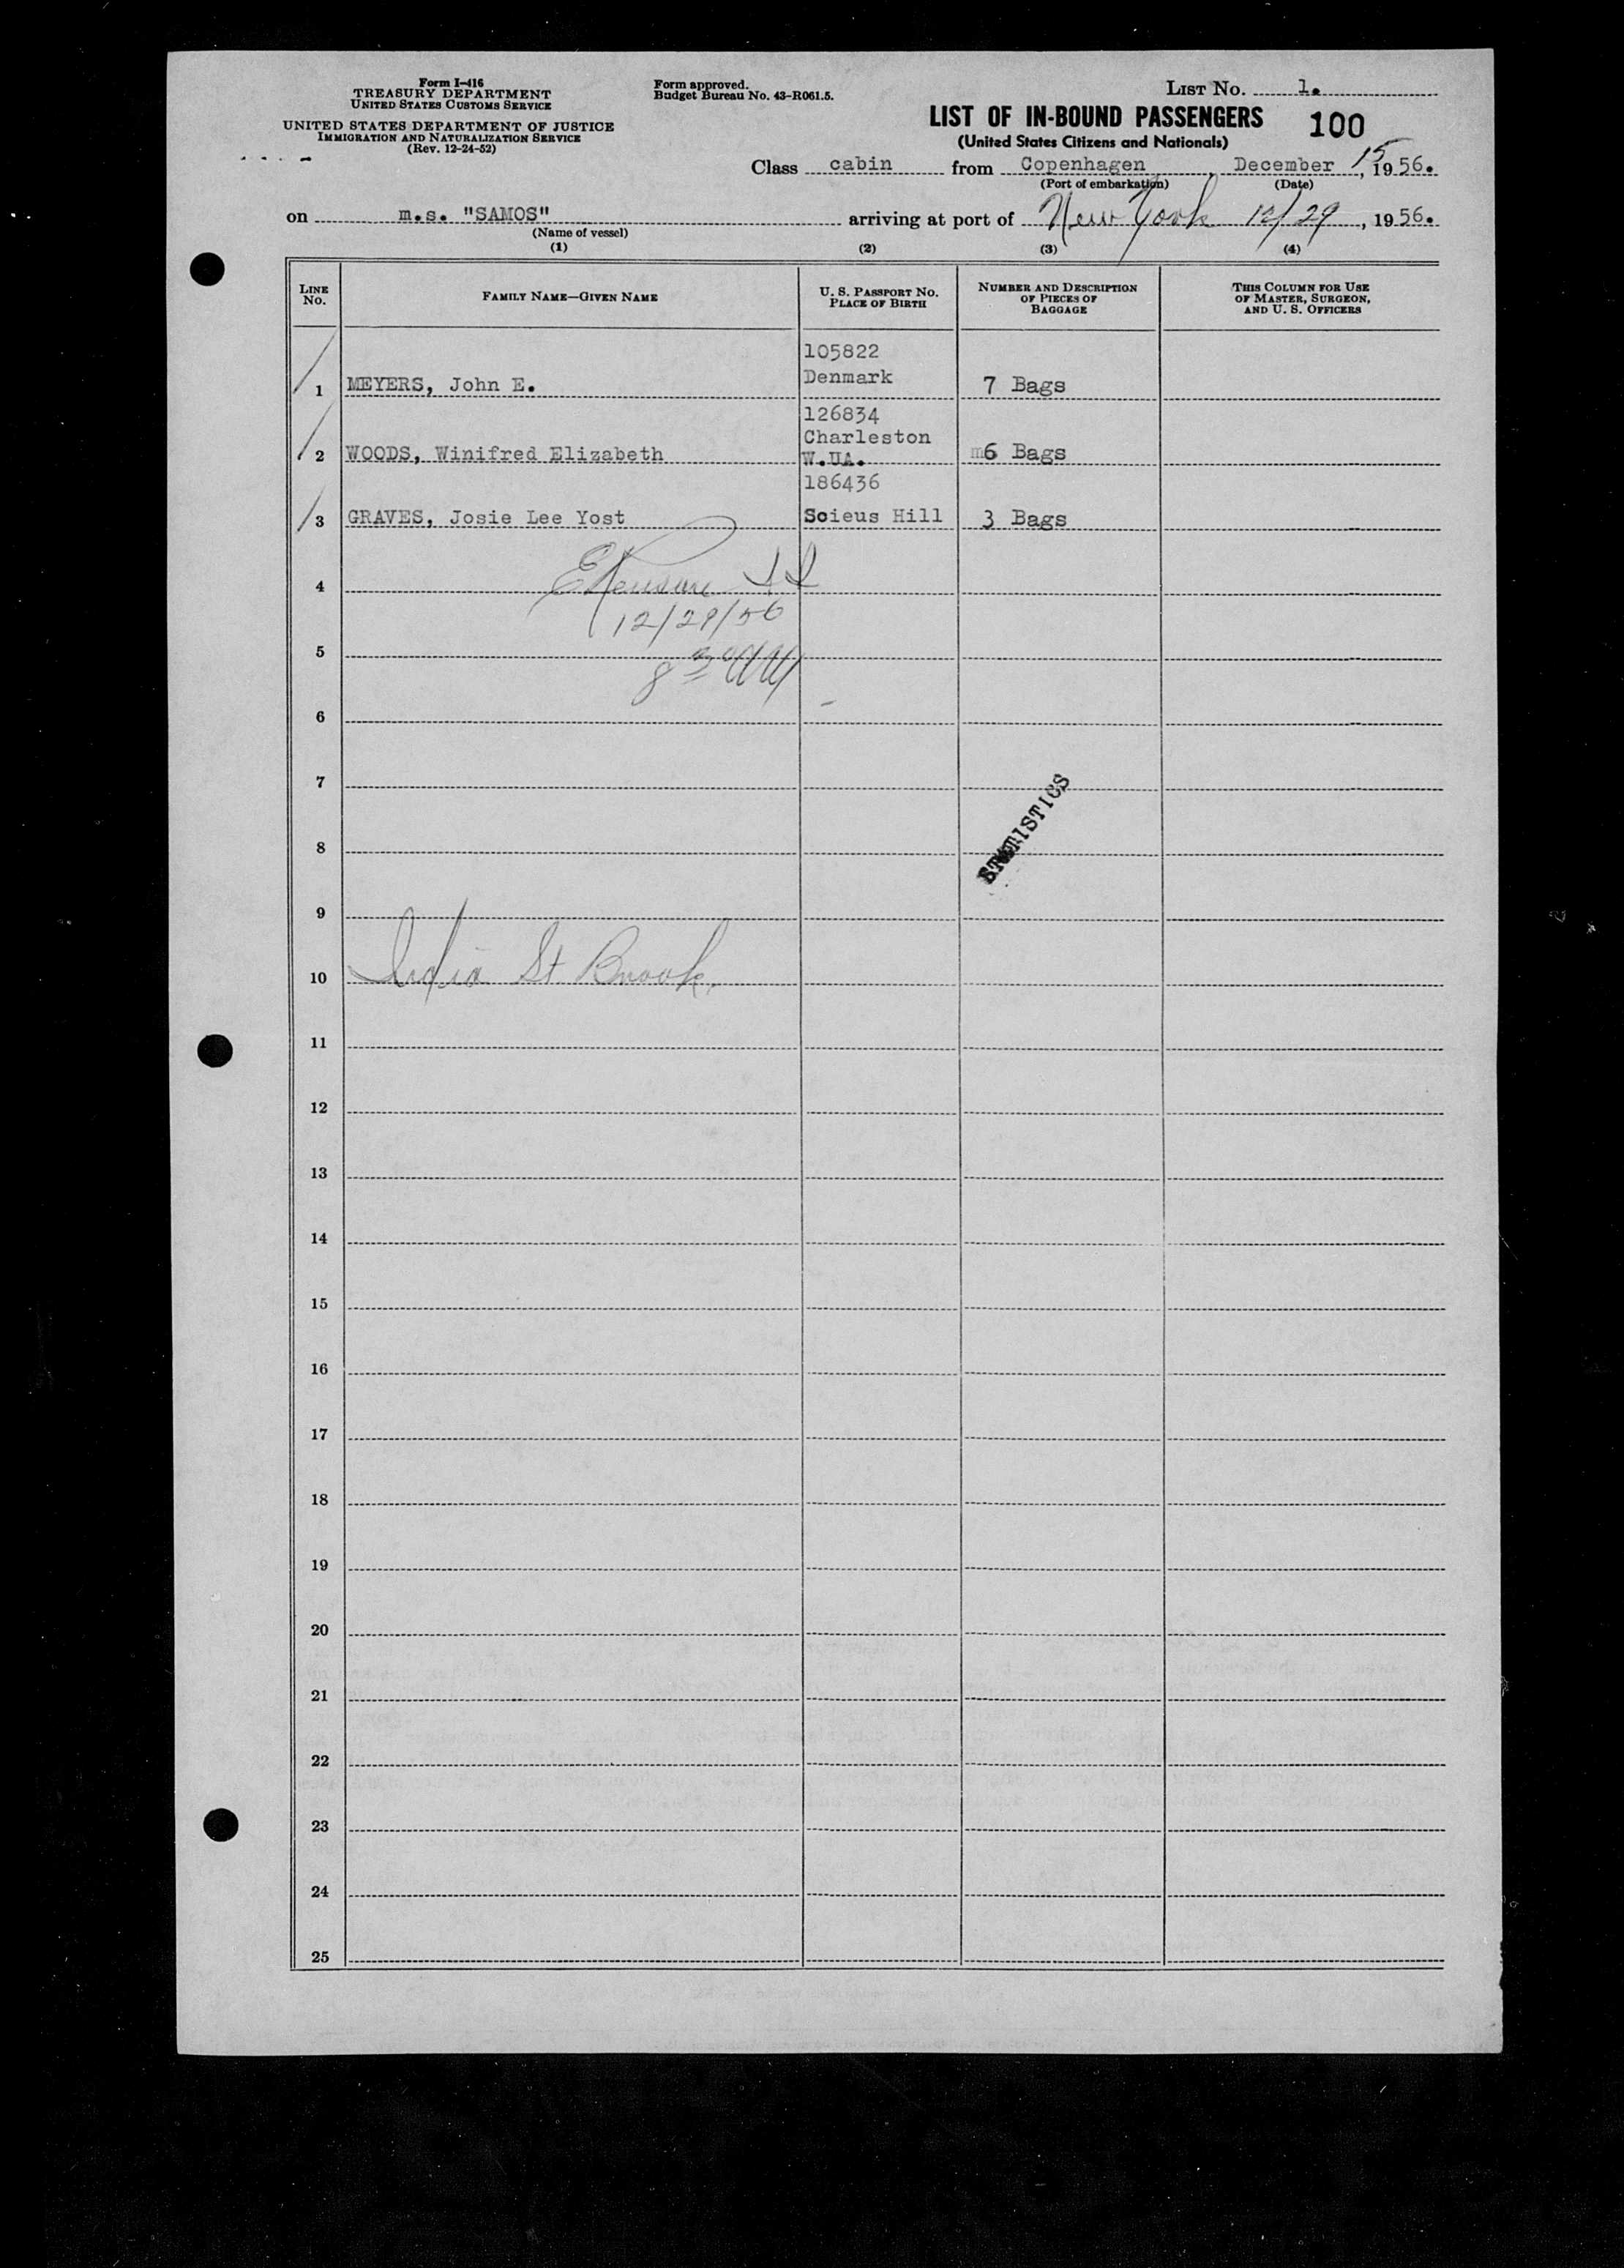 Form I-416
TREASURY DEPARTMENT
UNITED STATES CUSTOMS SERVICE
UNITED STATES DEPARTMENT OF JUSTICE
IMMIGRATION AND NATURALIZATION SERVICE
(Rev. 12-24-52)
Form approved.
Budget Bureau No. 43-R061.5.
LIST NO. 1.
LIST OF IN-BOUND PASSENGERS 100
(United States Citizens and Nationals)
Class cabin from Copenhagen, December 15, 1956.
(Port of embarkation) (Date)
on m.s. "SAMOS" arriving at port of New York 12/29, 1956.
(Name of vessel)
(1) (2) (3) (4)
LINE NO. FAMILY NAME—GIVEN NAME U. S. PASSPORT NO. PLACE OF BIRTH NUMBER AND DESCRIPTION OF PIECES OF BAGGAGE THIS COLUMN FOR USE OF MASTER, SURGEON, AND U. S. OFFICERS
105822
1 MEYERS, John E. Denmark 7 Bags
126834
Charleston
2 WOODS, Winifred Elizabeth W.UA. 6 Bags
186436
3 GRAVES, Josie Lee Yost Scieus Hill 3 Bags
4
12/29/56
5
8 30 AM
6
7
STATISTICS
8
9
10 India St Brook.
11
12
13
14
15
16
17
18
19
20
21
22
23
24
25